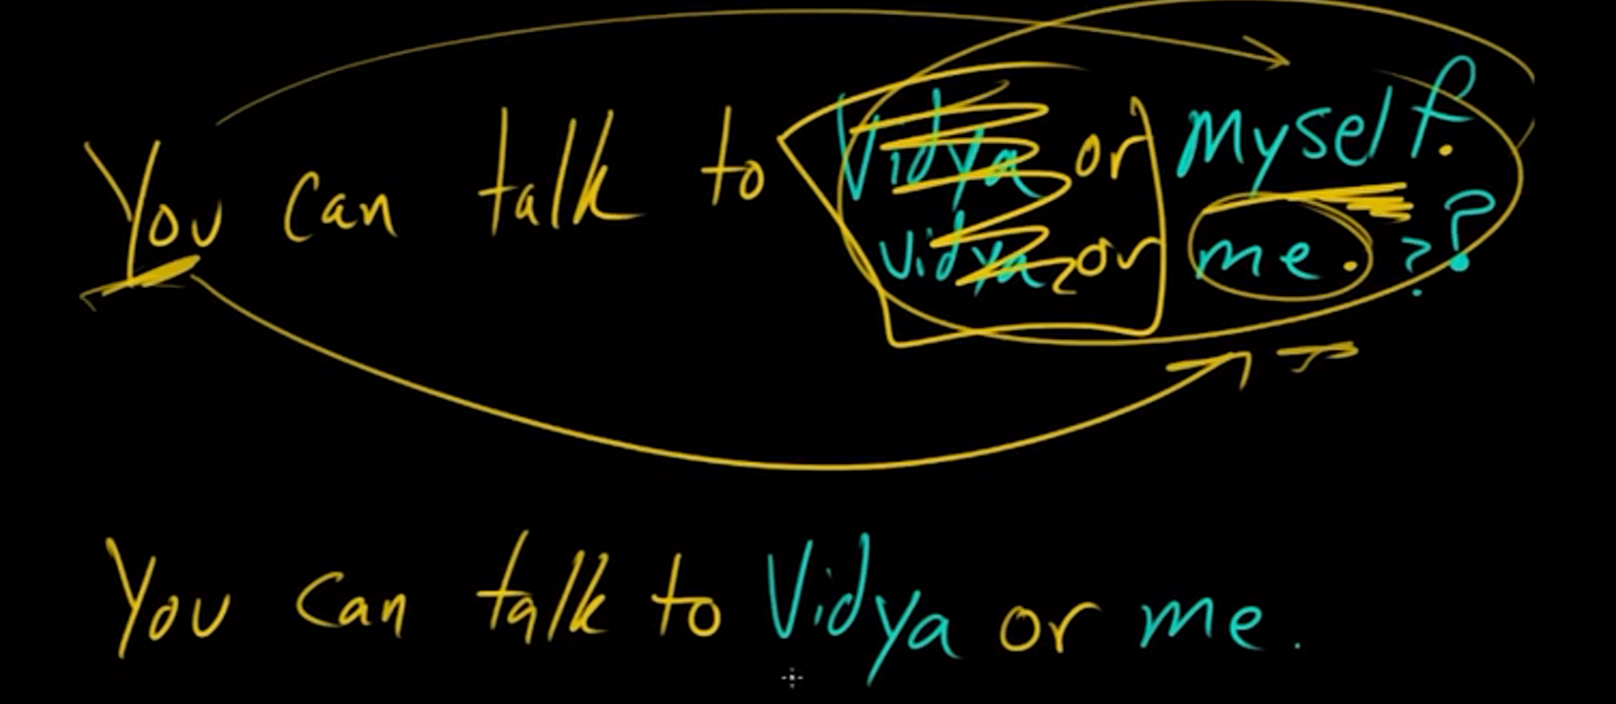 You can talk to Vidya or myself.
vidya or me. ??
You can talk to Vidya or me.